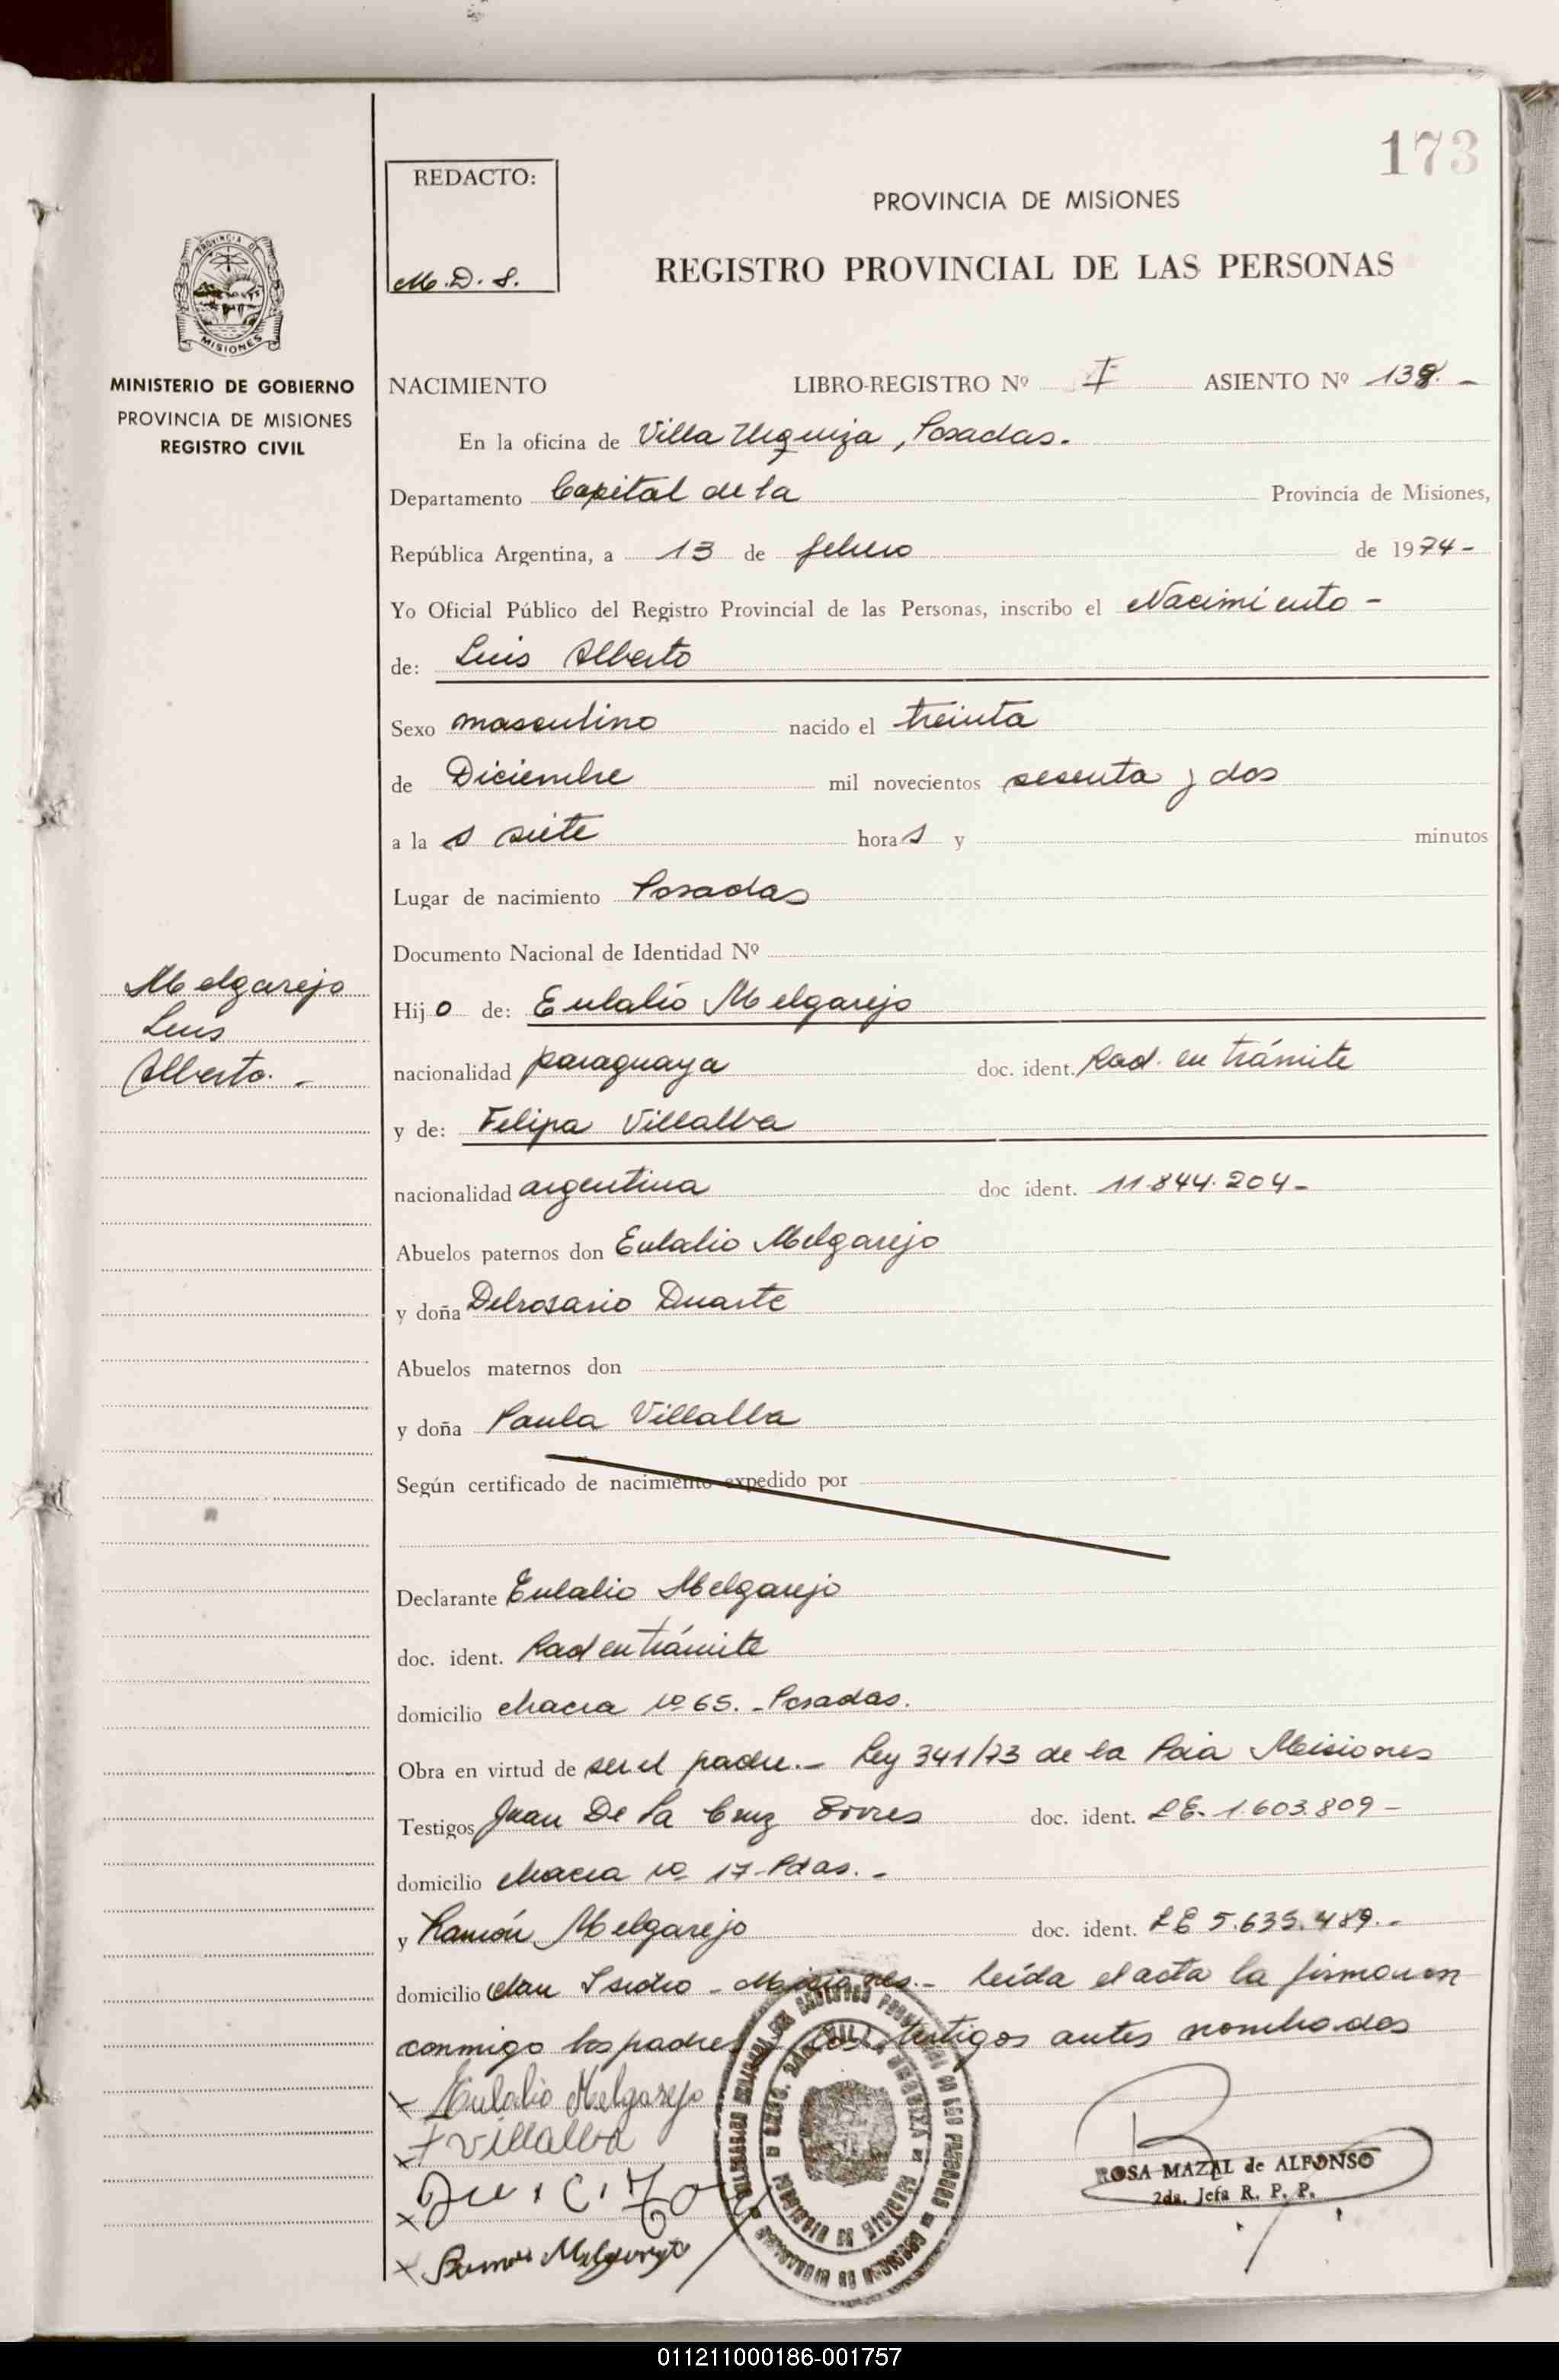 173
REDACTO:
M.D.S.
PROVINCIA DE MISIONES
REGISTRO PROVINCIAL DE LAS PERSONAS
PROVINCIA DE
MISIONES
MINISTERIO DE GOBIERNO
PROVINCIA DE MISIONES
REGISTRO CIVIL
NACIMIENTO LIBRO-REGISTRO Nº I ASIENTO Nº 138.-
En la oficina de Villa Urquiza, Posadas.
Departamento Capital de la Provincia de Misiones,
República Argentina, a 13 de febrero de 1974-
Yo Oficial Público del Registro Provincial de las Personas, inscribo el Nacimiento-
de: Luis Alberto
Sexo masculino nacido el treinta
de Diciembre mil novecientos sesenta y dos
a la s siete hora s y minutos
Lugar de nacimiento Posadas
Documento Nacional de Identidad Nº
Melgarejo
Luis
Alberto.-
Hij o de: Eulalio Melgarejo
nacionalidad paraguaya doc. ident. Rad. en trámite
y de: Felipa Villalba
nacionalidad argentina doc ident. 11.844.204-
Abuelos paternos don Eulalio Melgarejo
y doña Delrosario Duarte
Abuelos maternos don
y doña Paula Villalba
Según certificado de nacimiento expedido por
Declarante Eulalio Melgarejo
doc. ident. Rad en trámite
domicilio chacra nº 65.-Posadas.
Obra en virtud de ser el padre.- Ley 341/73 de la Pcia Misiones
Testigos Juan De La Cruz doc. ident. LE- 1.603.809-
domicilio chacra nº 17-Pdas.-
y Ramón Melgarejo doc. ident. LE 5.635.489.-
domicilio San Isidro - Misiones.- Leída el acta la firmaron
conmigo los padres y los testigos antes nombrados
Eulalio Melgarejo
F Villalba
Ramon Melgarejo
ROSA MAZAL de ALFONSO
2da. Jefa R. P. P.
011211000186-001757